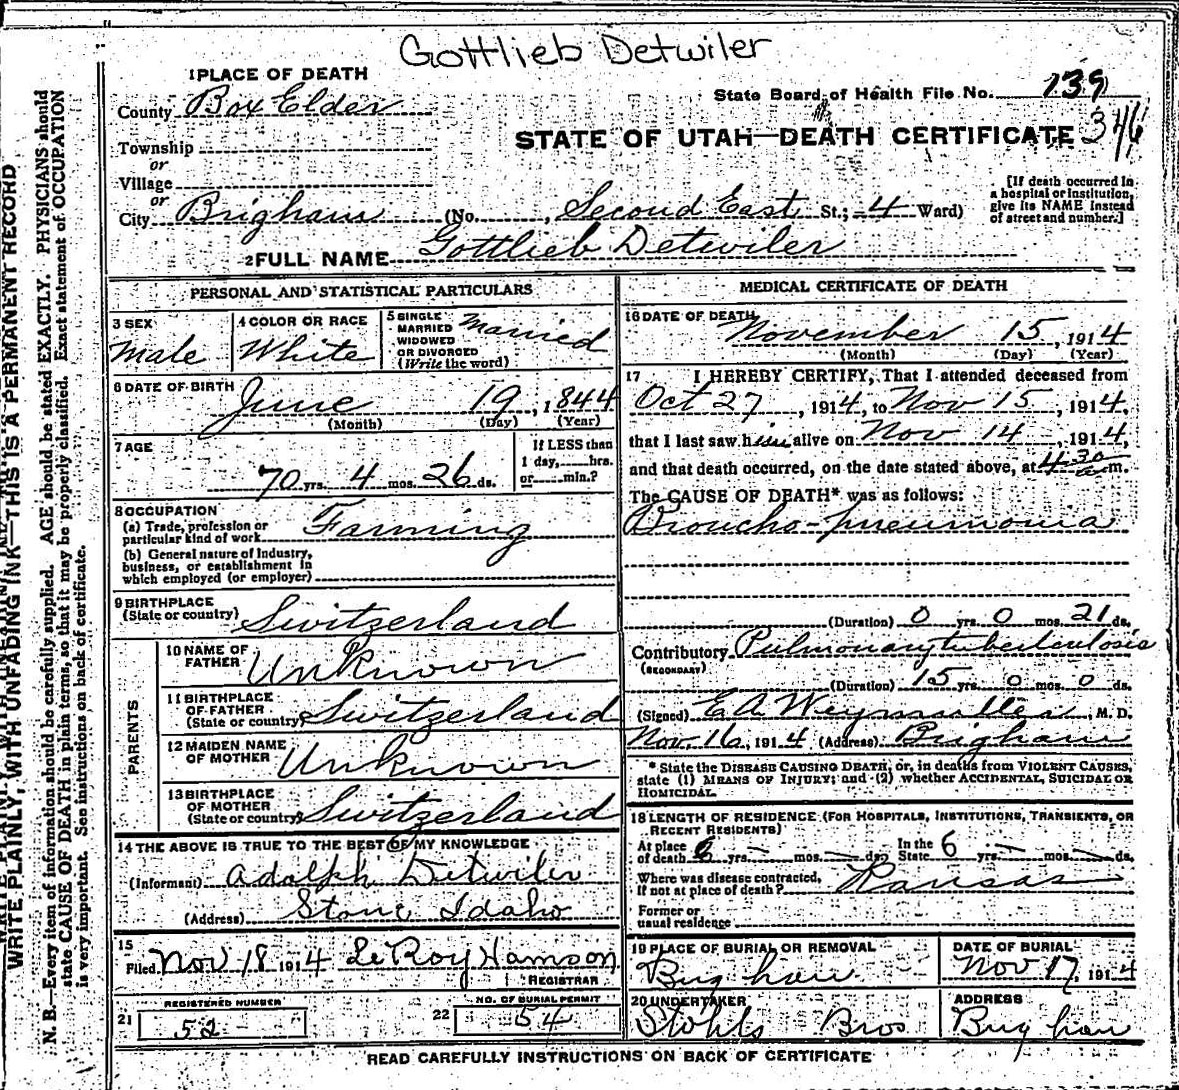 Gottlieb Detwiler
1 PLACE OF DEATH
State Board of Health File No. 139
County Box Elder
STATE OF UTAH—DEATH CERTIFICATE 346
Township
or
Village
or
[If death occurred in a hospital or institution, give its NAME instead of street and number.]
City Brigham (No. , Second East St.; 4 Ward)
2 FULL NAME Gottlieb Detwiler
PERSONAL AND STATISTICAL PARTICULARS
3 SEX Male
4 COLOR OR RACE White
5 SINGLE MARRIED WIDOWED OR DIVORCED (Write the word) Married
6 DATE OF BIRTH June 19, 1844
(Month) (Day) (Year)
7 AGE 70 yrs. 4 mos. 26 ds.
If LESS than 1 day, hrs. or min.?
8 OCCUPATION
(a) Trade, profession or particular kind of work Farming
(b) General nature of Industry, business, or establishment in which employed (or employer)
9 BIRTHPLACE (State or country) Switzerland
PARENTS
10 NAME OF FATHER Unknown
11 BIRTHPLACE OF FATHER (State or country) Switzerland
12 MAIDEN NAME OF MOTHER Unknown
13 BIRTHPLACE OF MOTHER (State or country) Switzerland
14 THE ABOVE IS TRUE TO THE BEST OF MY KNOWLEDGE
(Informant) Adolph Detwiler
(Address) Stone Idaho
15
Filed Nov 18 1914 Le Roy Hamson
REGISTRAR
REGISTERED NUMBER
21 52
NO. OF BURIAL PERMIT
22 54
MEDICAL CERTIFICATE OF DEATH
16 DATE OF DEATH November 15, 1914
(Month) (Day) (Year)
17 I HEREBY CERTIFY, That I attended deceased from
Oct 27, 1914, to Nov 15, 1914,
that I last saw him alive on Nov 14, 1914,
and that death occurred, on the date stated above, at 4 30 a m.
The CAUSE OF DEATH* was as follows:
Broncho-pneumonia
(Duration) 0 yrs. 0 mos. 21 ds.
Contributory Pulmonary tuberculosis
(SECONDARY)
(Duration) 15 yrs. 0 mos. 0 ds.
(Signed) E A Weymuller, M. D.
Nov. 16, 1914 (Address) Brigham
* State the DISEASE CAUSING DEATH, or, in deaths from VIOLENT CAUSES, state (1) MEANS OF INJURY; and (2) whether ACCIDENTAL, SUICIDAL OR HOMICIDAL.
18 LENGTH OF RESIDENCE (FOR HOSPITALS, INSTITUTIONS, TRANSIENTS, OR RECENT RESIDENTS)
At place of death 6 yrs. — mos. — ds. In the State 6 yrs. — mos. — ds.
Where was disease contracted, If not at place of death? Kansas
Former or usual residence
19 PLACE OF BURIAL OR REMOVAL Brigham
DATE OF BURIAL Nov 17, 1914
20 UNDERTAKER Stohls Bros
ADDRESS Brigham
READ CAREFULLY INSTRUCTIONS ON BACK OF CERTIFICATE
WRITE PLAINLY, WITH UNFADING INK—THIS IS A PERMANENT RECORD
N. B.—Every item of information should be carefully supplied. AGE should be stated EXACTLY. PHYSICIANS should
state CAUSE OF DEATH in plain terms, so that it may be properly classified. Exact statement of OCCUPATION
is very important. See instructions on back of certificate.